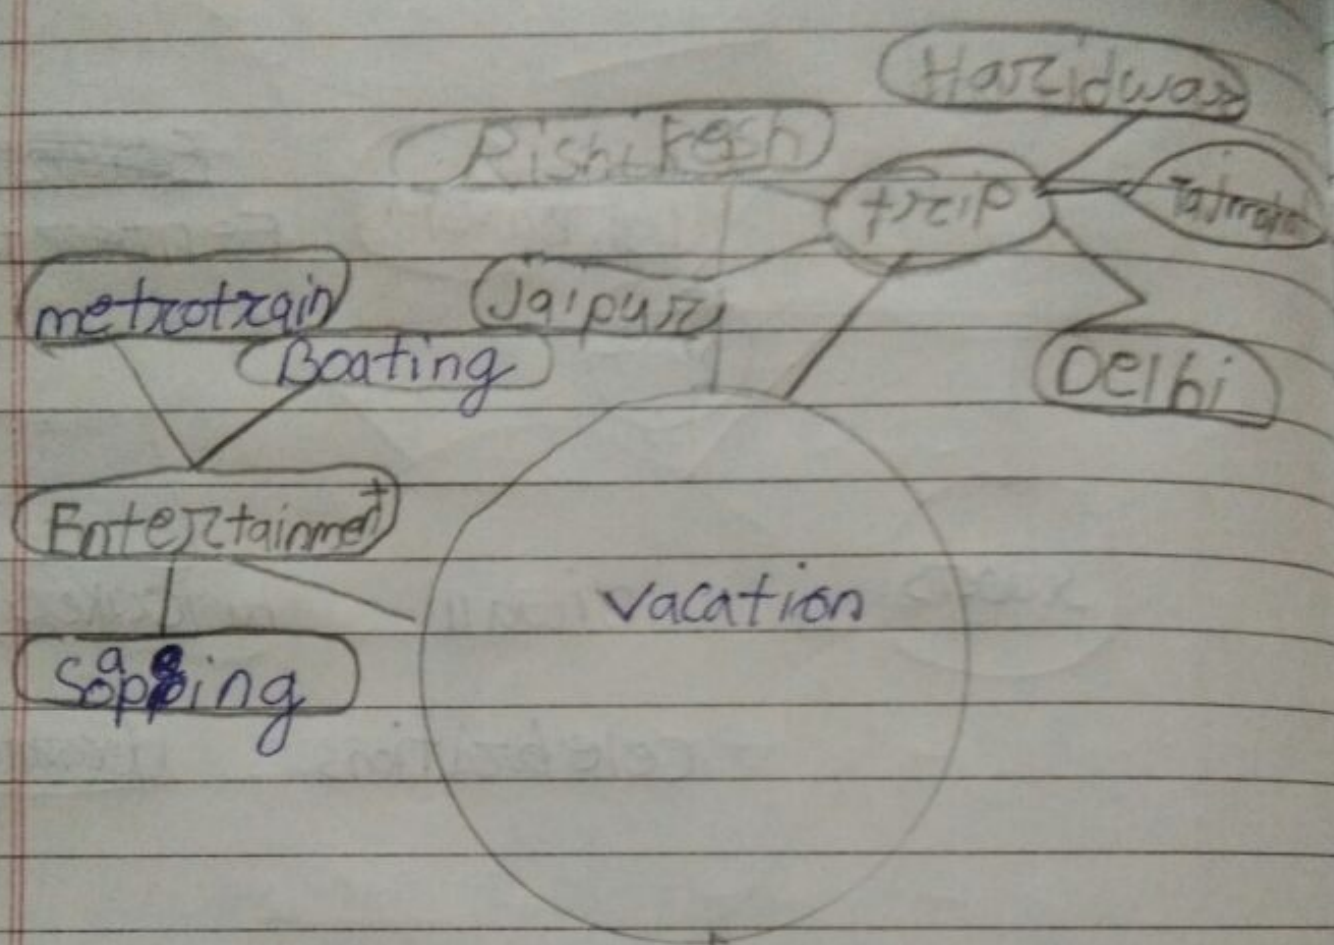 Haridwar
Rishikesh
trip
Tajmahal
metrotrain
Jaipur
Boating
Delhi
Entertainment
vacation